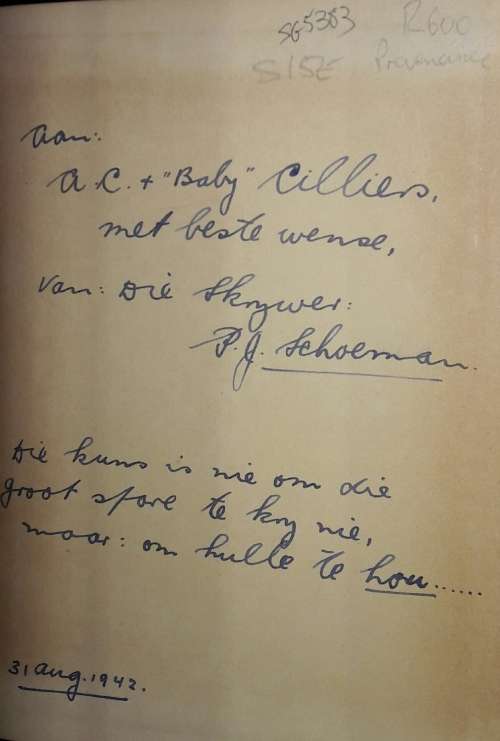 SG5383 R600
S15E Provenance
Aan:
A.C. + "Baby" Cilliers,
met beste wense,
Van: Die Skrywer:
P.J. Schoeman.
Die kuns is nie om die
groot spore te kry nie,
maar: om hulle te hou......
31 Aug. 1942.